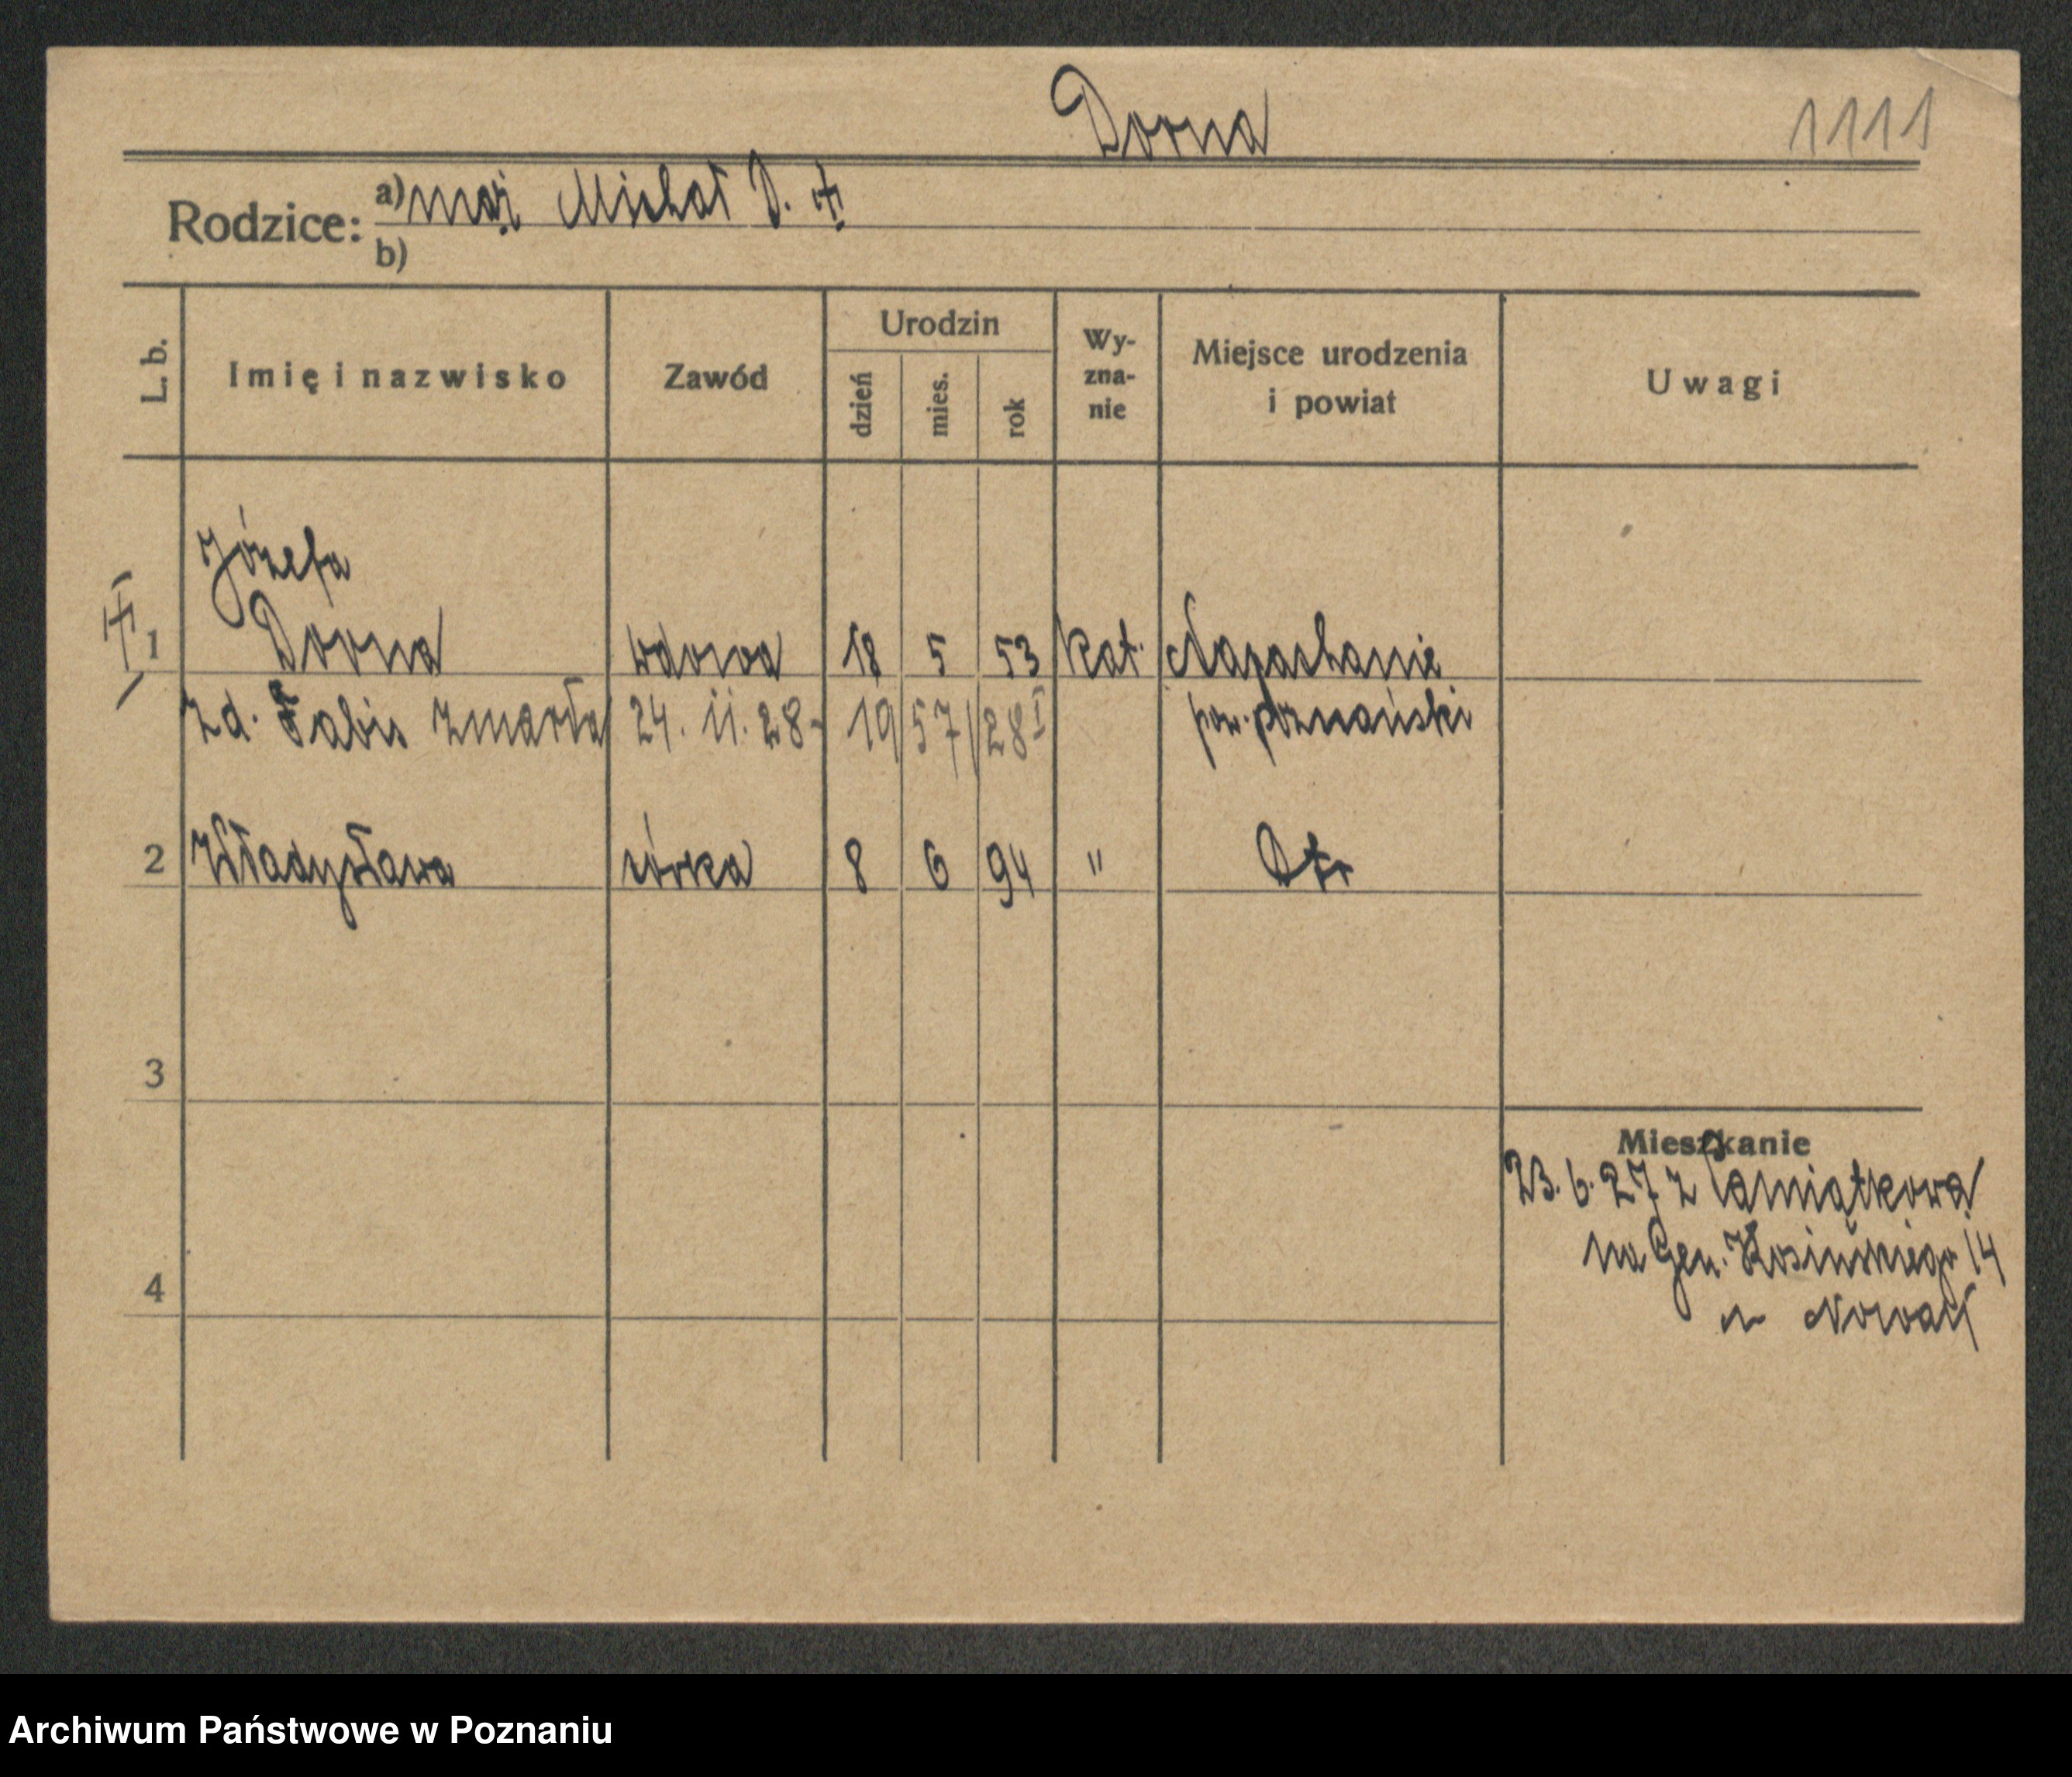 Dorna 1111
Rodzice: a) mąż Michał D. ‡
b)
L. b. Imię i nazwisko Zawód Urodzin dzień mies. rok Wy-zna-nie Miejsce urodzenia i powiat Uwagi
Józefa
1 Dorna wdowa 18 5 53 kat. Napachanie
zd. Fabis zmarła 24. 11. 28 - 1957/28 I pow. poznański
2 Władysława córka 8 6 94 "
3
Mieszkanie
23. 6. 27 z Pamiątkowa
na Gen. Kosińskiego 14
4
u Nowak
Archiwum Państwowe w Poznaniu